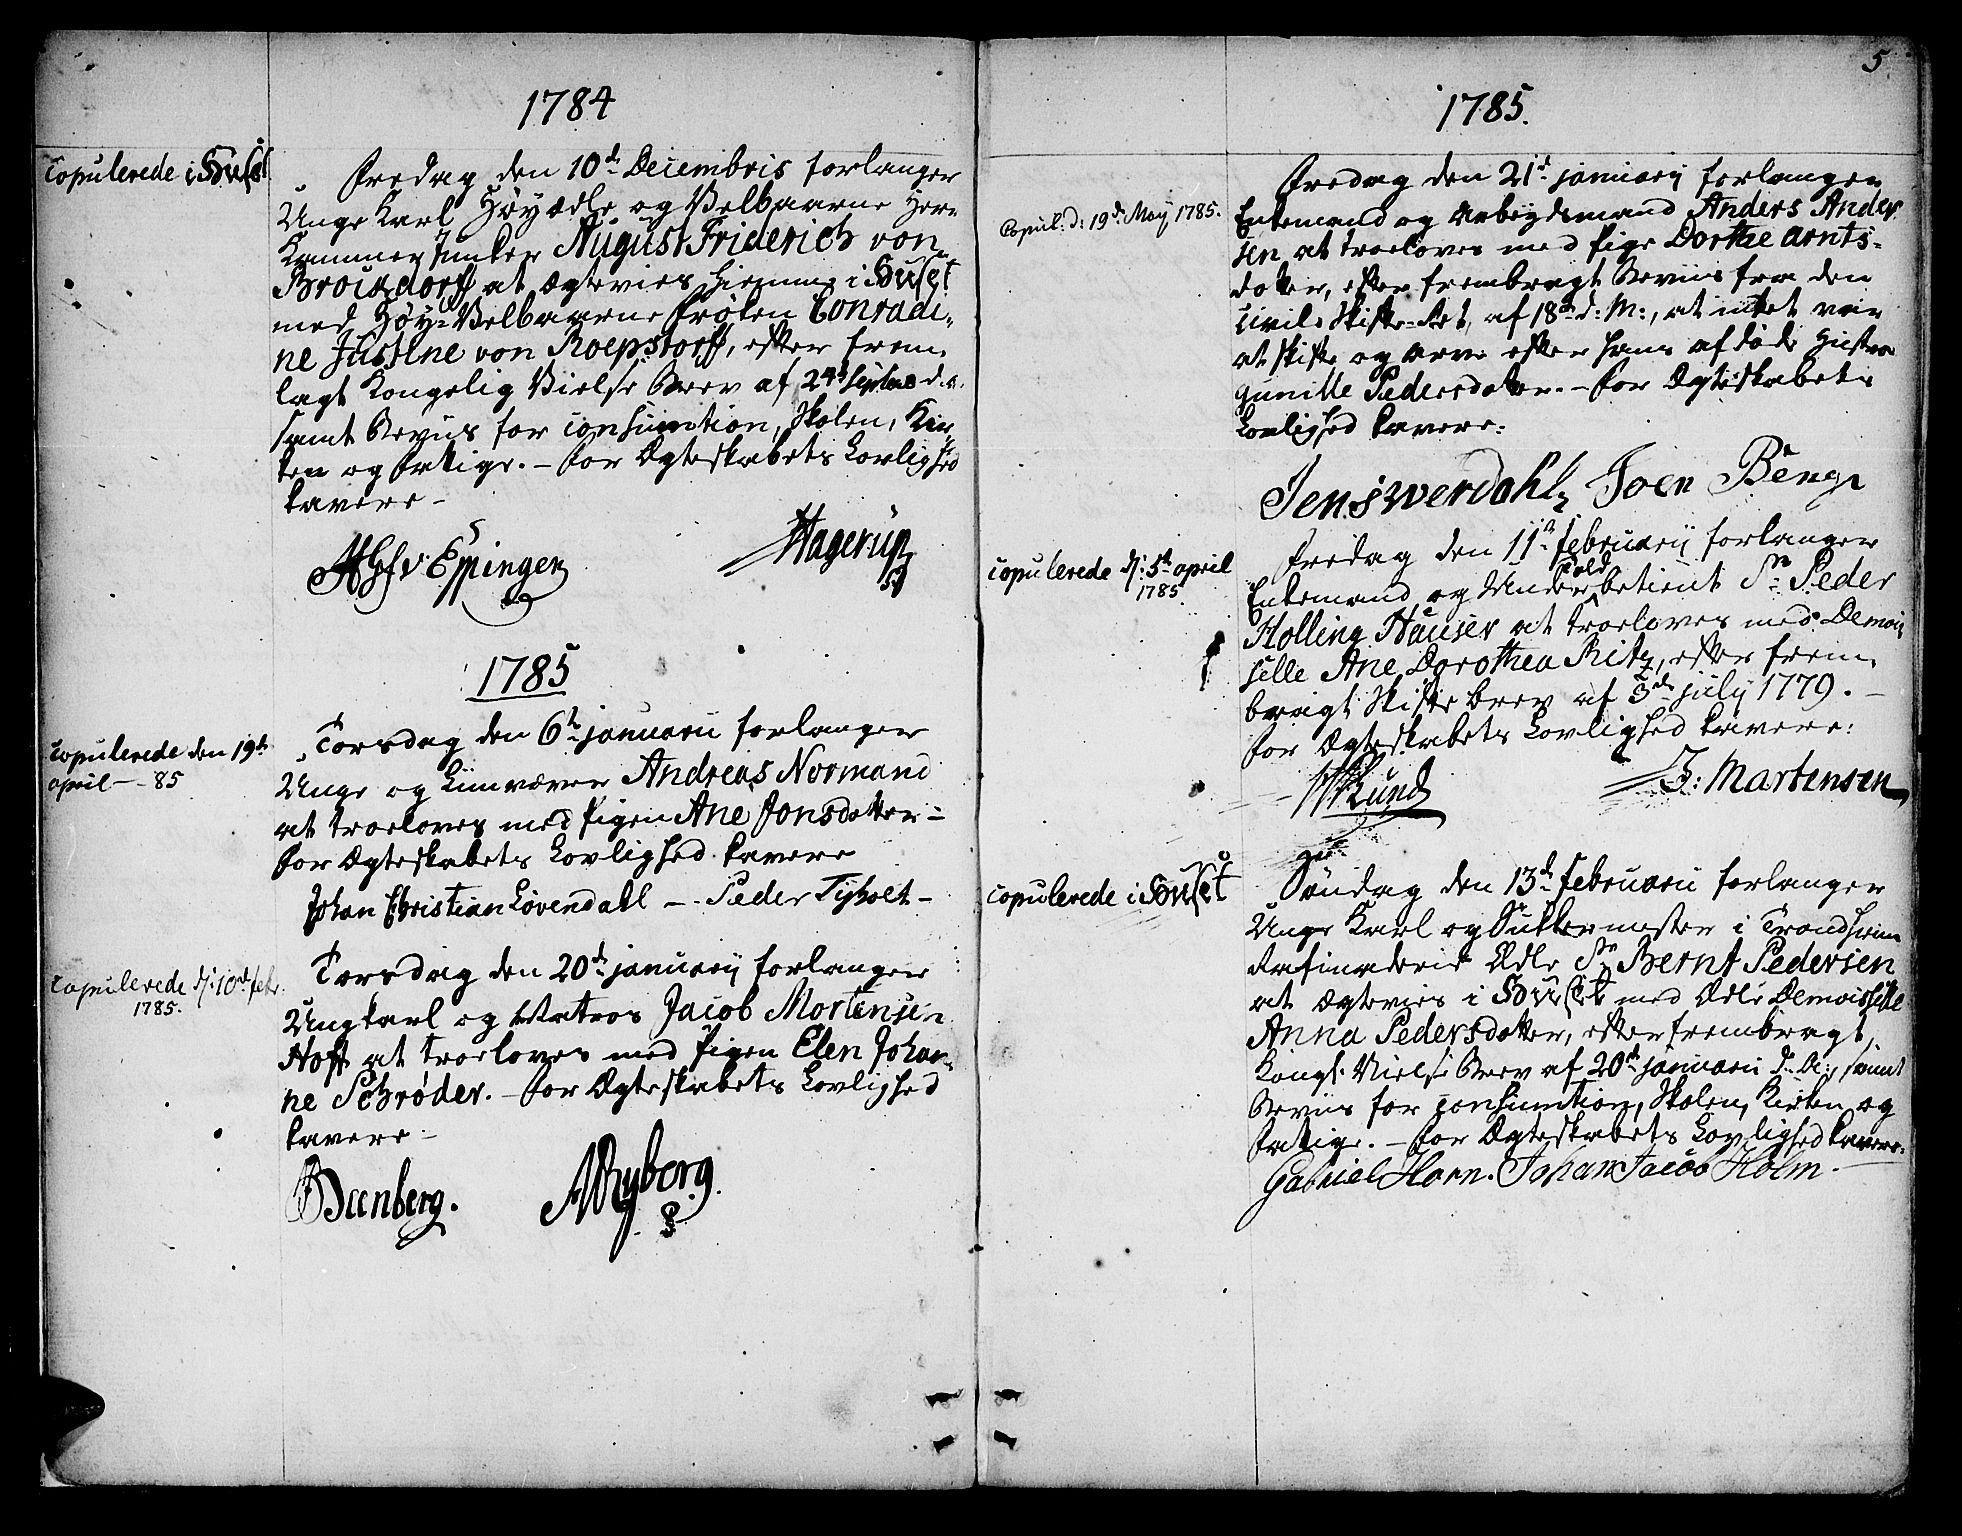 1784
Copulerede i Huset
Fredag den 10de Decembris forlanger
Unge Karl Høyædle og Velbaarne Herr
Kammer Junker August Friderich von
Brockdorff at ægtevies hiemme i Huset
med Høy-Velbaarne Frøken Conradi-
ne Justine von Roepstorff, efter frem-
lagt Kongelig Vielse Brev af 24de Septbr d. a.
samt Beviis for Consumtion, Skolen, Kir
ken og Fattige. – For Ægteskabets Lovlighed
cavere –
v: Eppingen
Hagerup
1785
Copulerede den 19de
april – 85
Torsdag den 6te januarii forlanger
Unge og Liinvæver Andreas Normand
at troeloves med Pigen Ane Jonsdotter –
For Ægteskabets Lovlighed cavere
Johan Christian Lövendahl – Peder Tyholt –
Copulerede d: 10de febr:
1785.
Torsdag den 20de januarij forlanger
Ungkarl og Matros Jacob Mortensen
Hoff at troeloves med Pigen Elen Johan-
ne Schrøder. – For Ægteskabets Lovlighed
cavere –
Beenberg.
Ryborg.
5
1785.
Copul: d: 19de Maij 1785.
Fredag den 21de januarij forlanger
Enkemand og Arbeydsmand Anders Ander
sen at troeloves med Pige Dorthe Arnts-
dotter, efter frembragt Beviis fra den
Civile Skifte-Ret, af 18de d: M:, at intet var
at skifte og arve efter hans afdøde Hustro
Gunille Pedersdotter. – For Ægteskabets
Lovlighed cavere:
Jens werdahl, Joen Beng
Copulerede d: 5te april
1785.
Fredag den 11te februarij forlanger
Enkemand og Under Told betient Sr Peder
Holling Hauser at troeloves med Demoi
selle Ane Dorothea Ritz, efter frem-
bragt Skifte brev af 3de july 1779. –
For Ægteskabets Lovlighed cavere:
Lund
J: Martensen
Copulerede i Huset
Söndag den 13de februarii forlanger
Unge Karl og Sukkermester i Trondhiems
Rafinaderie Ædle Sr Bernt Pedersen
at ægtevies i Huuset med Ædle Demoiselle
Anna Pedersdotter, efter frembragt
Kongl: Vielse Brev af 20de januarii d: A:, samt
Beviis for Consumtion, Skolen, Kirken og
Fattige. – For Ægteskabets Lovlighed cavere:
Gabriel Horn. Johan Jacob Holm. –